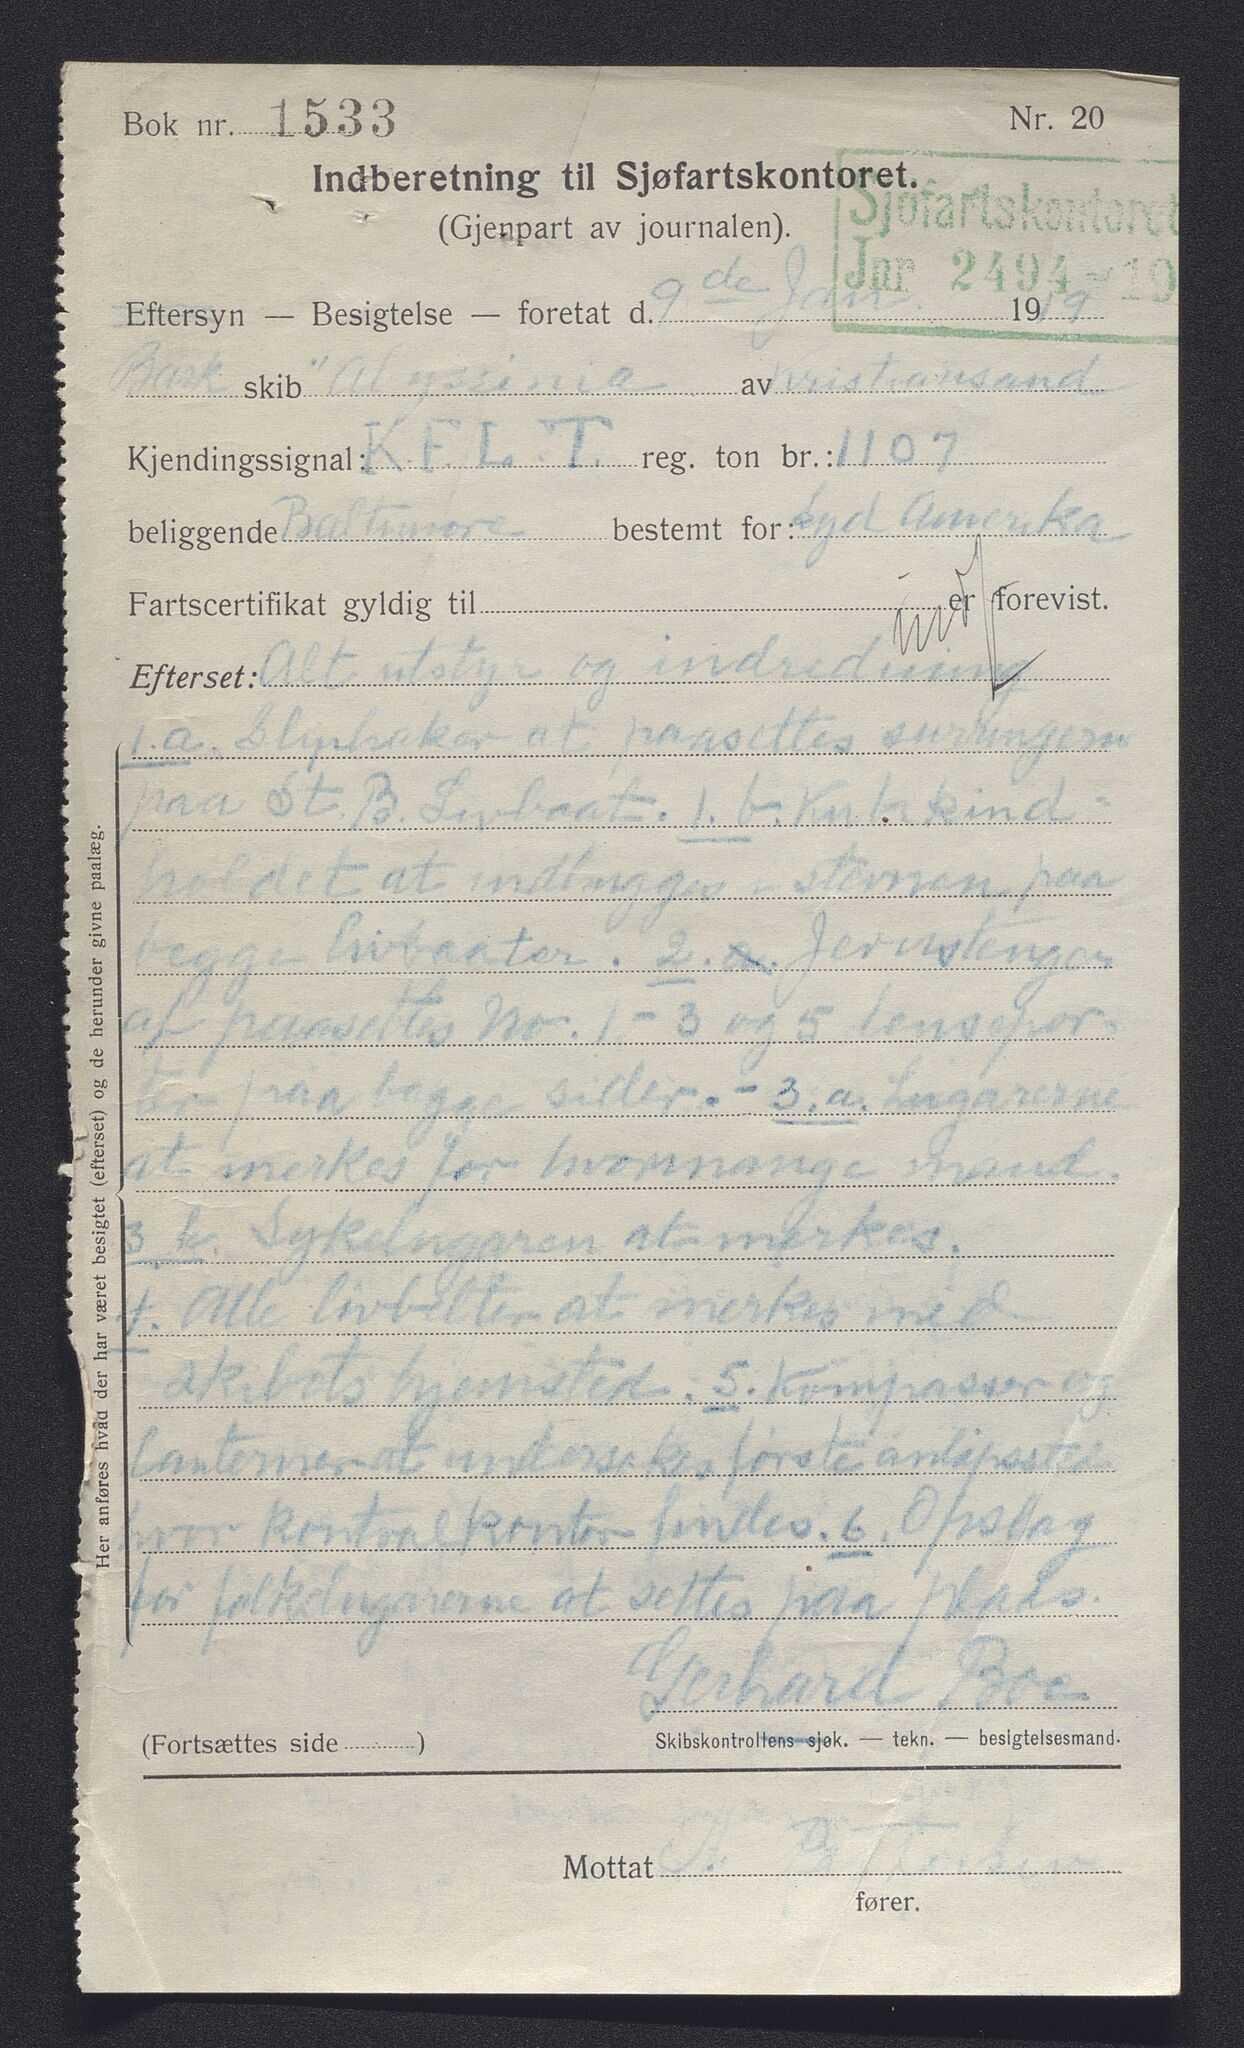 Bok nr. 1533 Nr. 20
Indberetning til Sjøfartskontoret.
(Gjenpart av journalen).
Sjøfartskontoret
Jnr 2494 - 19
Eftersyn — Besigtelse — foretat d. 9de Jan. 1919
Bark skib "Abyssinia av Kristiansand
Kjendingssignal: K.F.L.T. reg. ton br.: 1107
beliggende Baltimore bestemt for: Syd Amerika
Fartscertifikat gyldig til er forevist.
Efterset: Alt utstyr og indredning
1.a. Sliphaker at paasettes surringern
paa St. B. Livbaat. 1.b. Kubikind-
holdet at indhugges i stevnen paa
begge livbaater. 2. Jernstenger
at paasettes No. 1 - 3 og 5 lensepor-
ter paa begge sider. - 3.a. Lugarerne
at merkes for hvormange mand.
3 b. Sykelugaren at merkes.
4. Alle livbelter at merkes med
skibets hjemsted. 5. Kompasser og
Lanterner at undersøkes første anløpssted
hvor kontrolkontor findes. 6. Opslag
for folkelugarerne at settes paa plads.
Gerhard Boe
(Fortsættes side ) Skibskontrollens sjøk. — tekn. — besigtelsesmand.
Mottat
fører.
Her anføres hvad der har været besigtet (efterset) og de herunder givne paalæg.